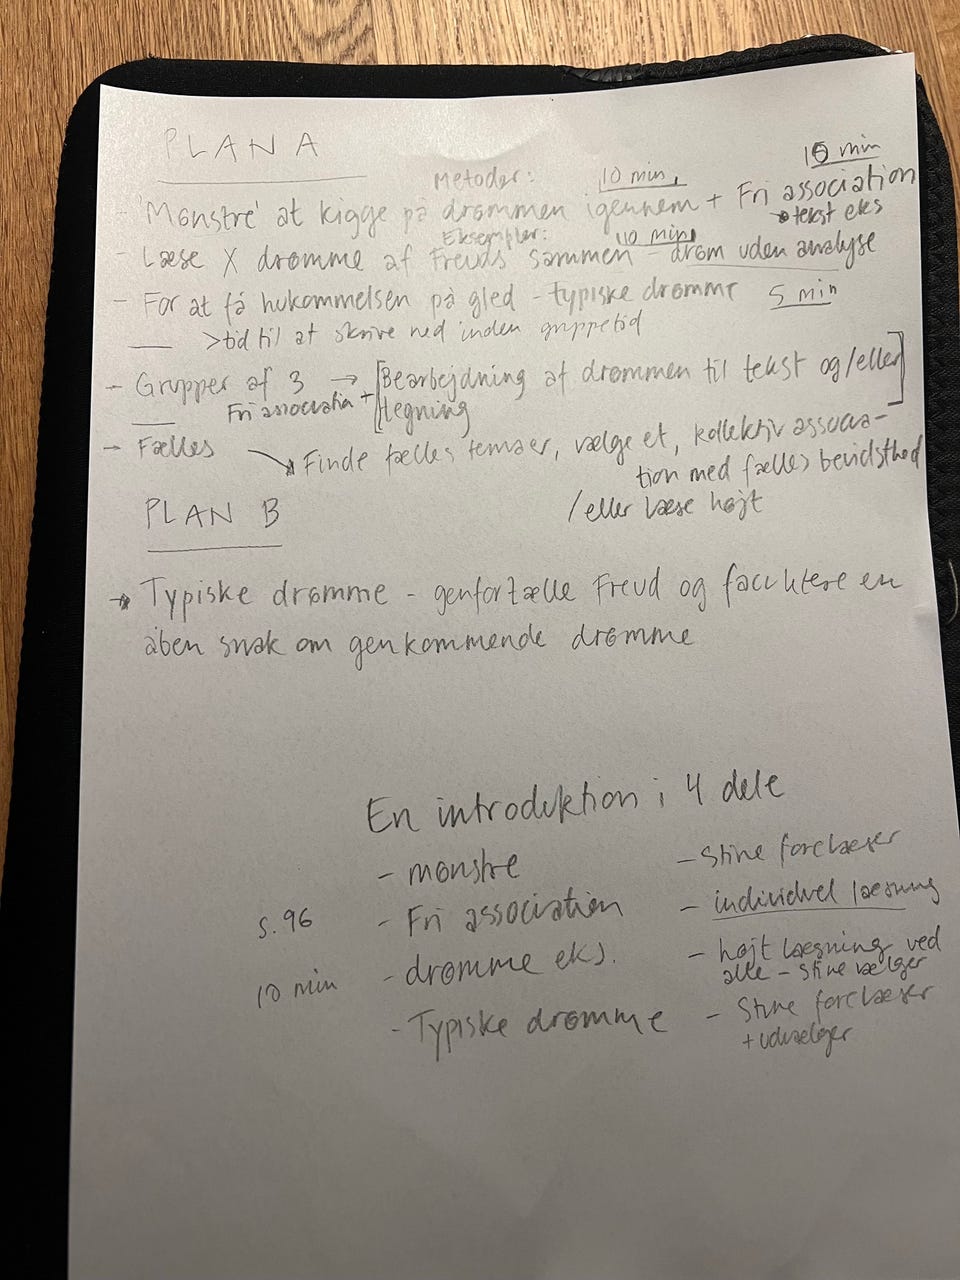 PLAN A
Metoder: 10 min, 10 min
- 'Mønstre' at kigge på drømmen igennem + Fri association
→ tekst eks
Eksempler: 10 min
- Læse X drømme af Freuds sammen - drøm uden analyse
- For at få hukommelsen på gled - typiske drømme 5 min
>tid til at skrive ned inden gruppetid
- Grupper af 3 → [Bearbejdning af drømmen til tekst og/eller
Fri association + tegning]
- Fælles → Finde fælles temaer, vælge et, kollektiv associa-
tion med fælles bevidsthed
/eller læse højt
PLAN B
→ Typiske drømme - genfortælle Freud og facilitere en
åben snak om genkommende drømme
En introduktion i 4 dele
- mønstre - Stine forelæser
s. 96 - Fri association - individuel læsning
10 min - drømme eks. - højt læsning ved
alle - Stine vælger
- Typiske drømme - Stine forelæser
+ udvælger